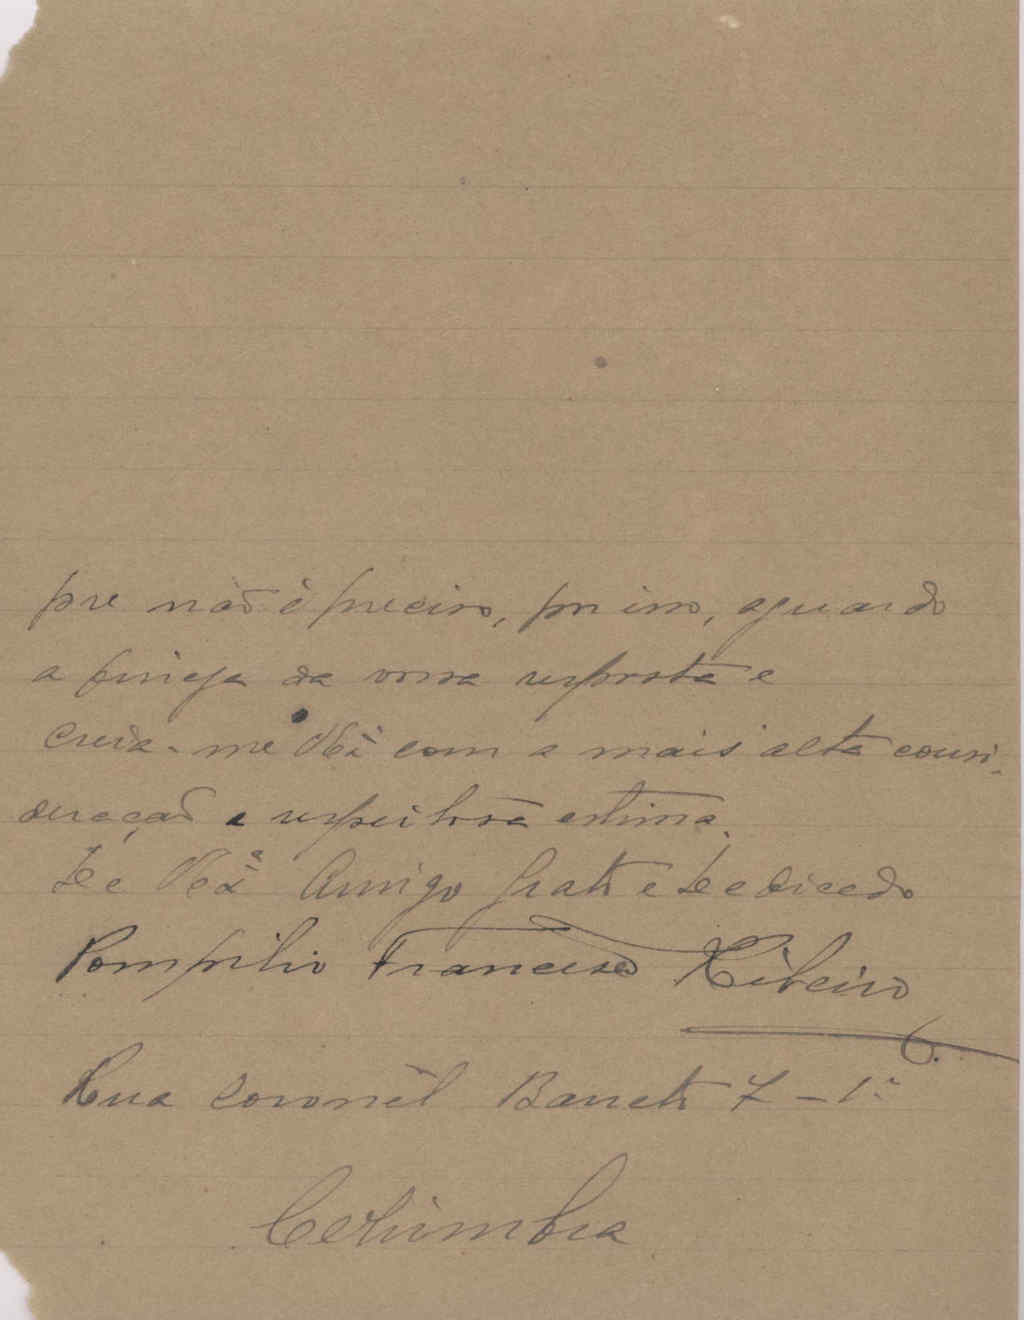 pre não é preciso, por isso, aguardo
a fineza da vossa resposta e
creia-me VExª com a mais alta consi-
deração e respeitosa estima.
De VExª Amigo Grato e Dedicado
Pompilio Francisco Ribeiro
Rua Coronel Barreto 7-1º
Corumba